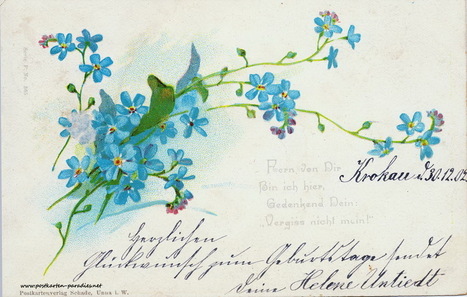 Fern von Dir
Bin ich hier,
Gedenkend Dein:
„Vergiss nicht mein!“
Krokau d. 30.12.02
Herzlichen
Glückwunsch zum Geburtstage sendet
Deine Helene Untiedt
www.postkarten-paradies.net
Postkartenverlag Schade, Unna i. W.